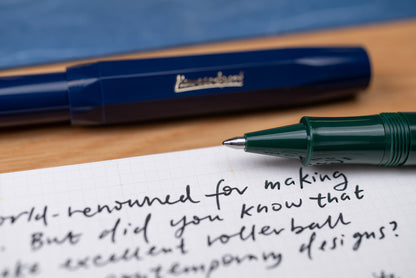 world-renowned for making
. But did you know that
excellent rollerball
contemporary designs?